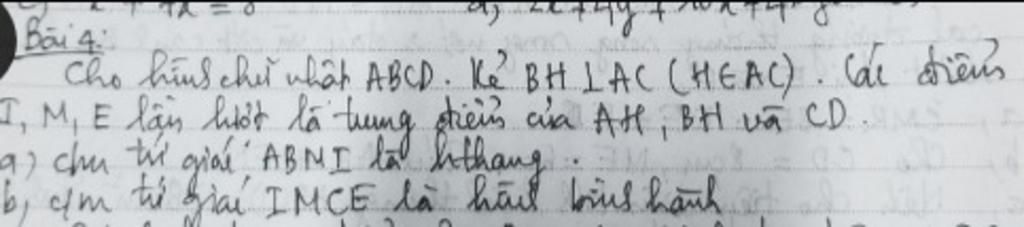 Bài 4:
Cho hình chữ nhật ABCD. Kẻ BH ⊥ AC (H∈AC). Các điểm
I, M, E lần lượt là trung điểm của AH, BH và CD.
a) cm tứ giác ABMI là hthang.
b, c/m tứ giác IMCE là hình bình hành